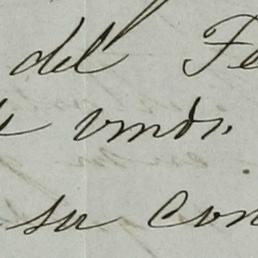 del Fe
vmds.
su con